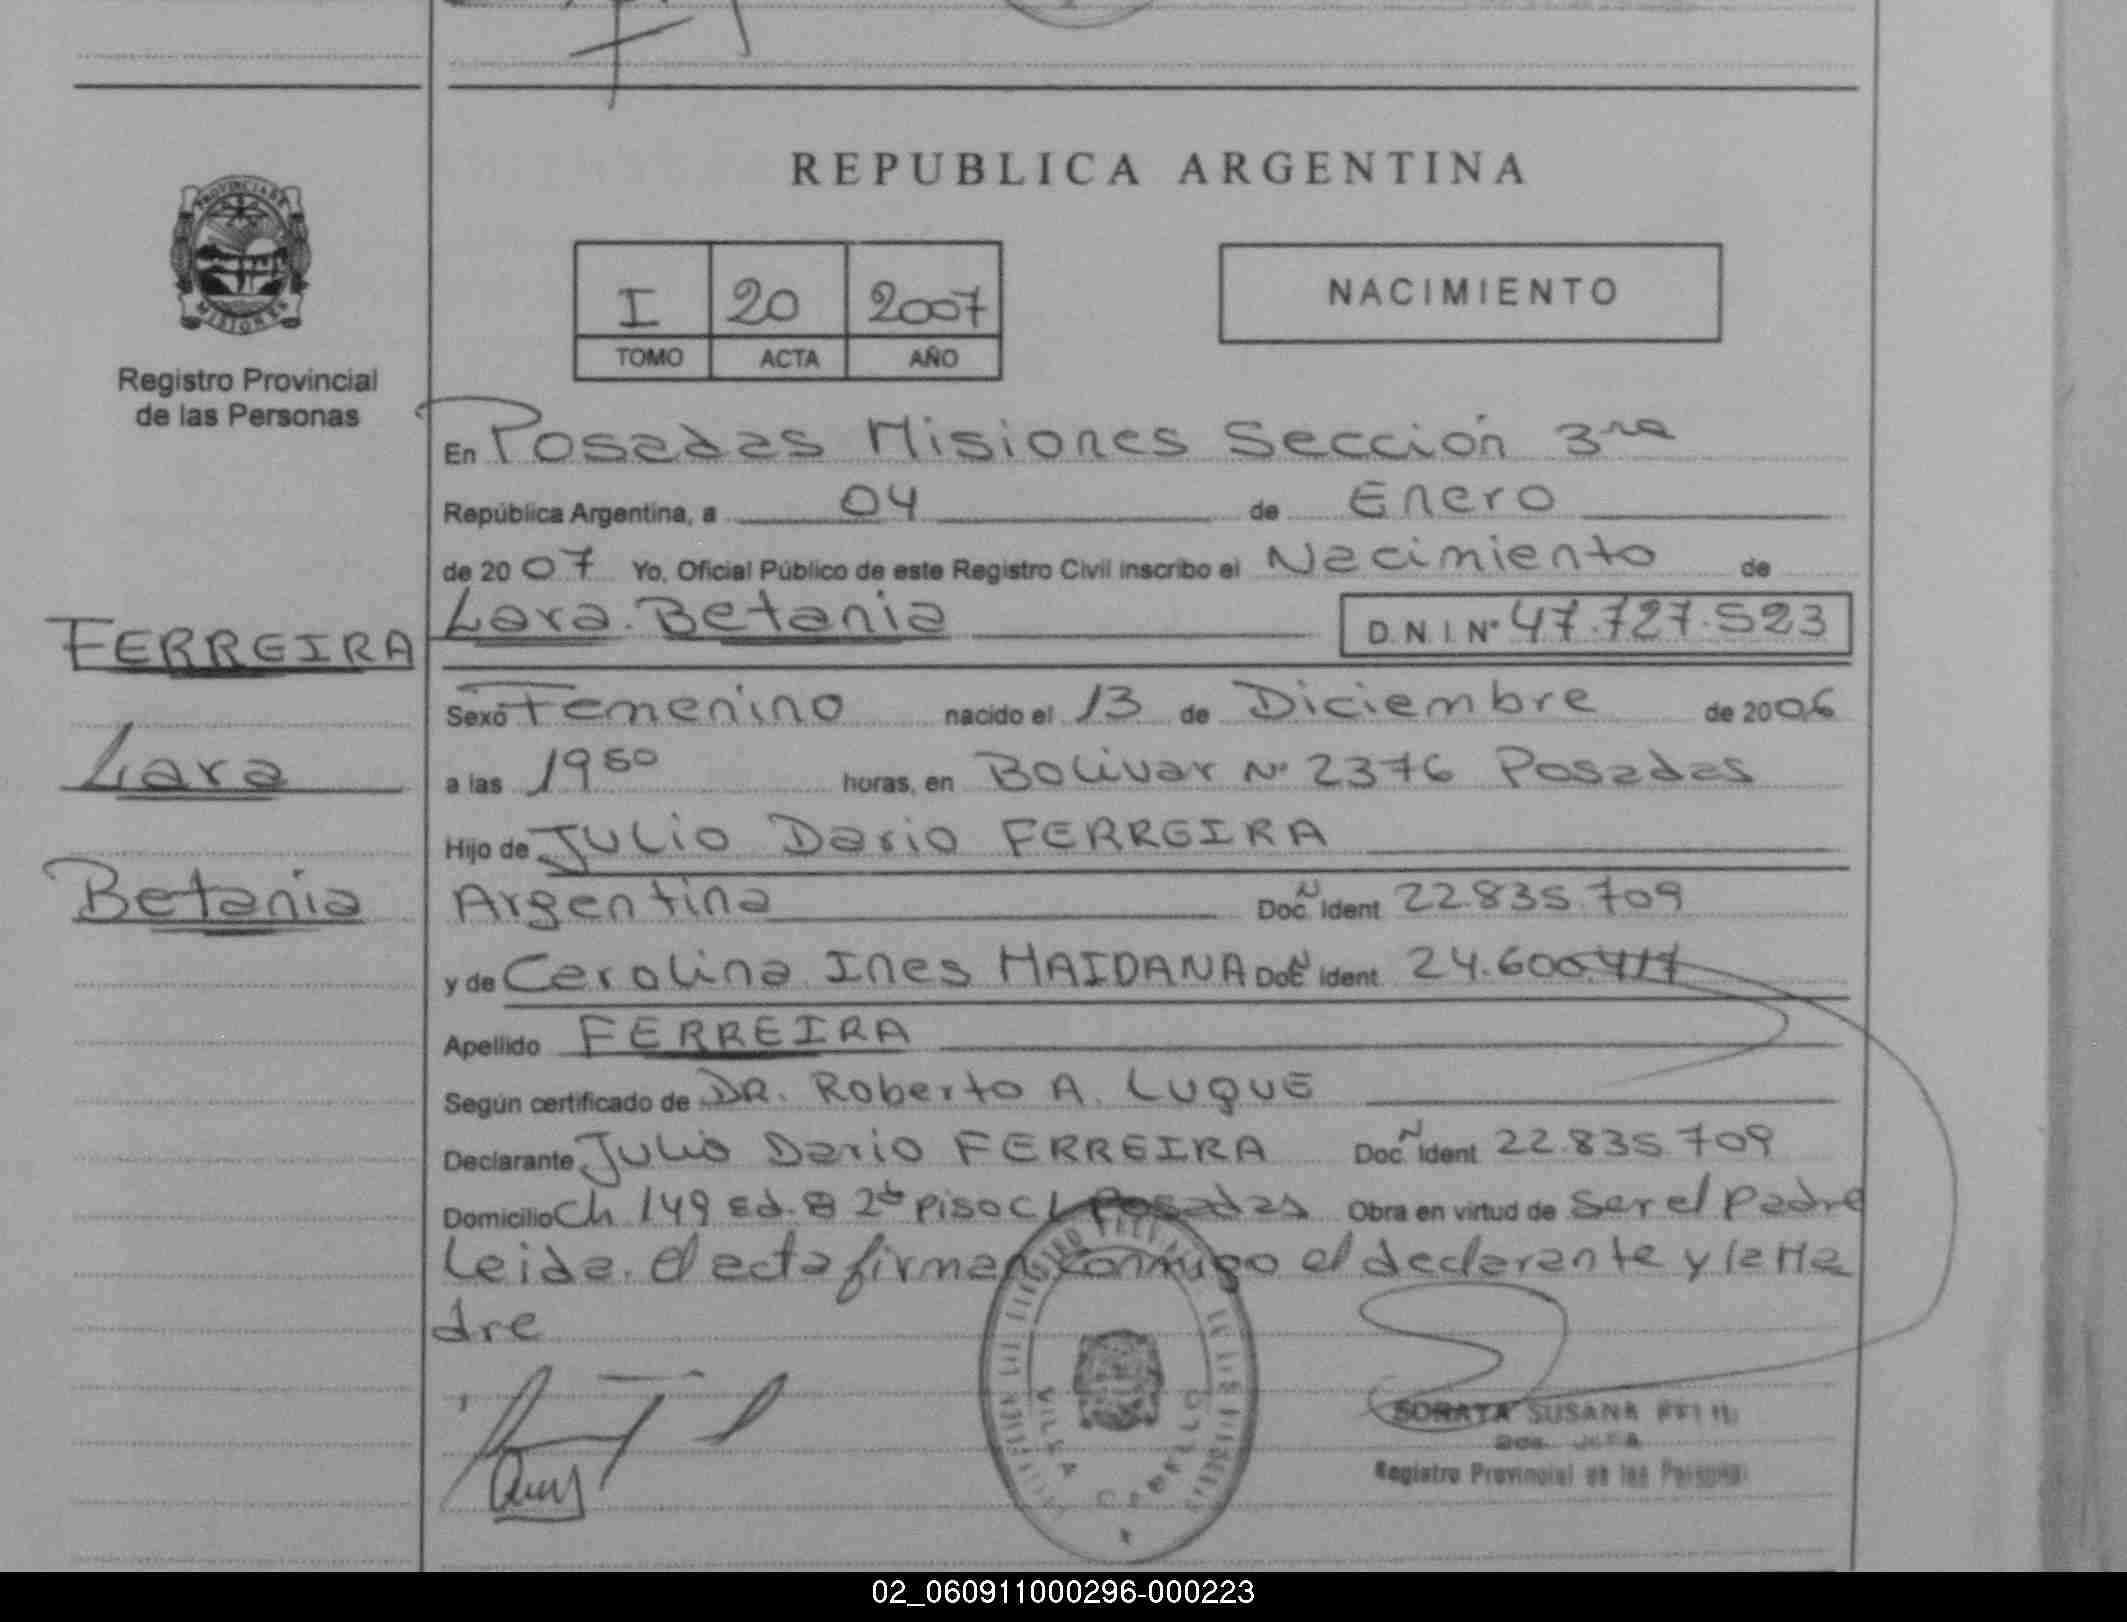 REPUBLICA ARGENTINA
PROVINCIA DE
MISIONES
Registro Provincial
de las Personas
I 20 2007
TOMO ACTA AÑO
NACIMIENTO
En Posadas Misiones Sección 3ra
República Argentina, a 04 de Enero
de 2007 Yo, Oficial Público de este Registro Civil inscribo el Nacimiento de
Lara Betania D.N.I. Nº 47.727.523
FERREIRA
Lara
Betania
Sexo Femenino nacido el 13 de Diciembre de 2006
a las 1950 horas, en Bolivar Nº 2376 Posadas
Hijo de Julio Dario FERREIRA
Argentina Doc. Ident. 22.835.709
y de Carolina Ines MAIDANA Doc. Ident. 24.600.417
Apellido FERREIRA
Según certificado de DR. Roberto A. LUQUE
Declarante Julio Dario FERREIRA Doc. Ident. 22.835.709
Domicilio Ch 149 Ed. 8 2do piso Posadas Obra en virtud de ser el padre
Leida el acta firman conmigo el declarante y la Ma
dre
VILLA CABELLO
SORAYA SUSANA
JEFA
Registro Provincial de las Personas
02_060911000296-000223